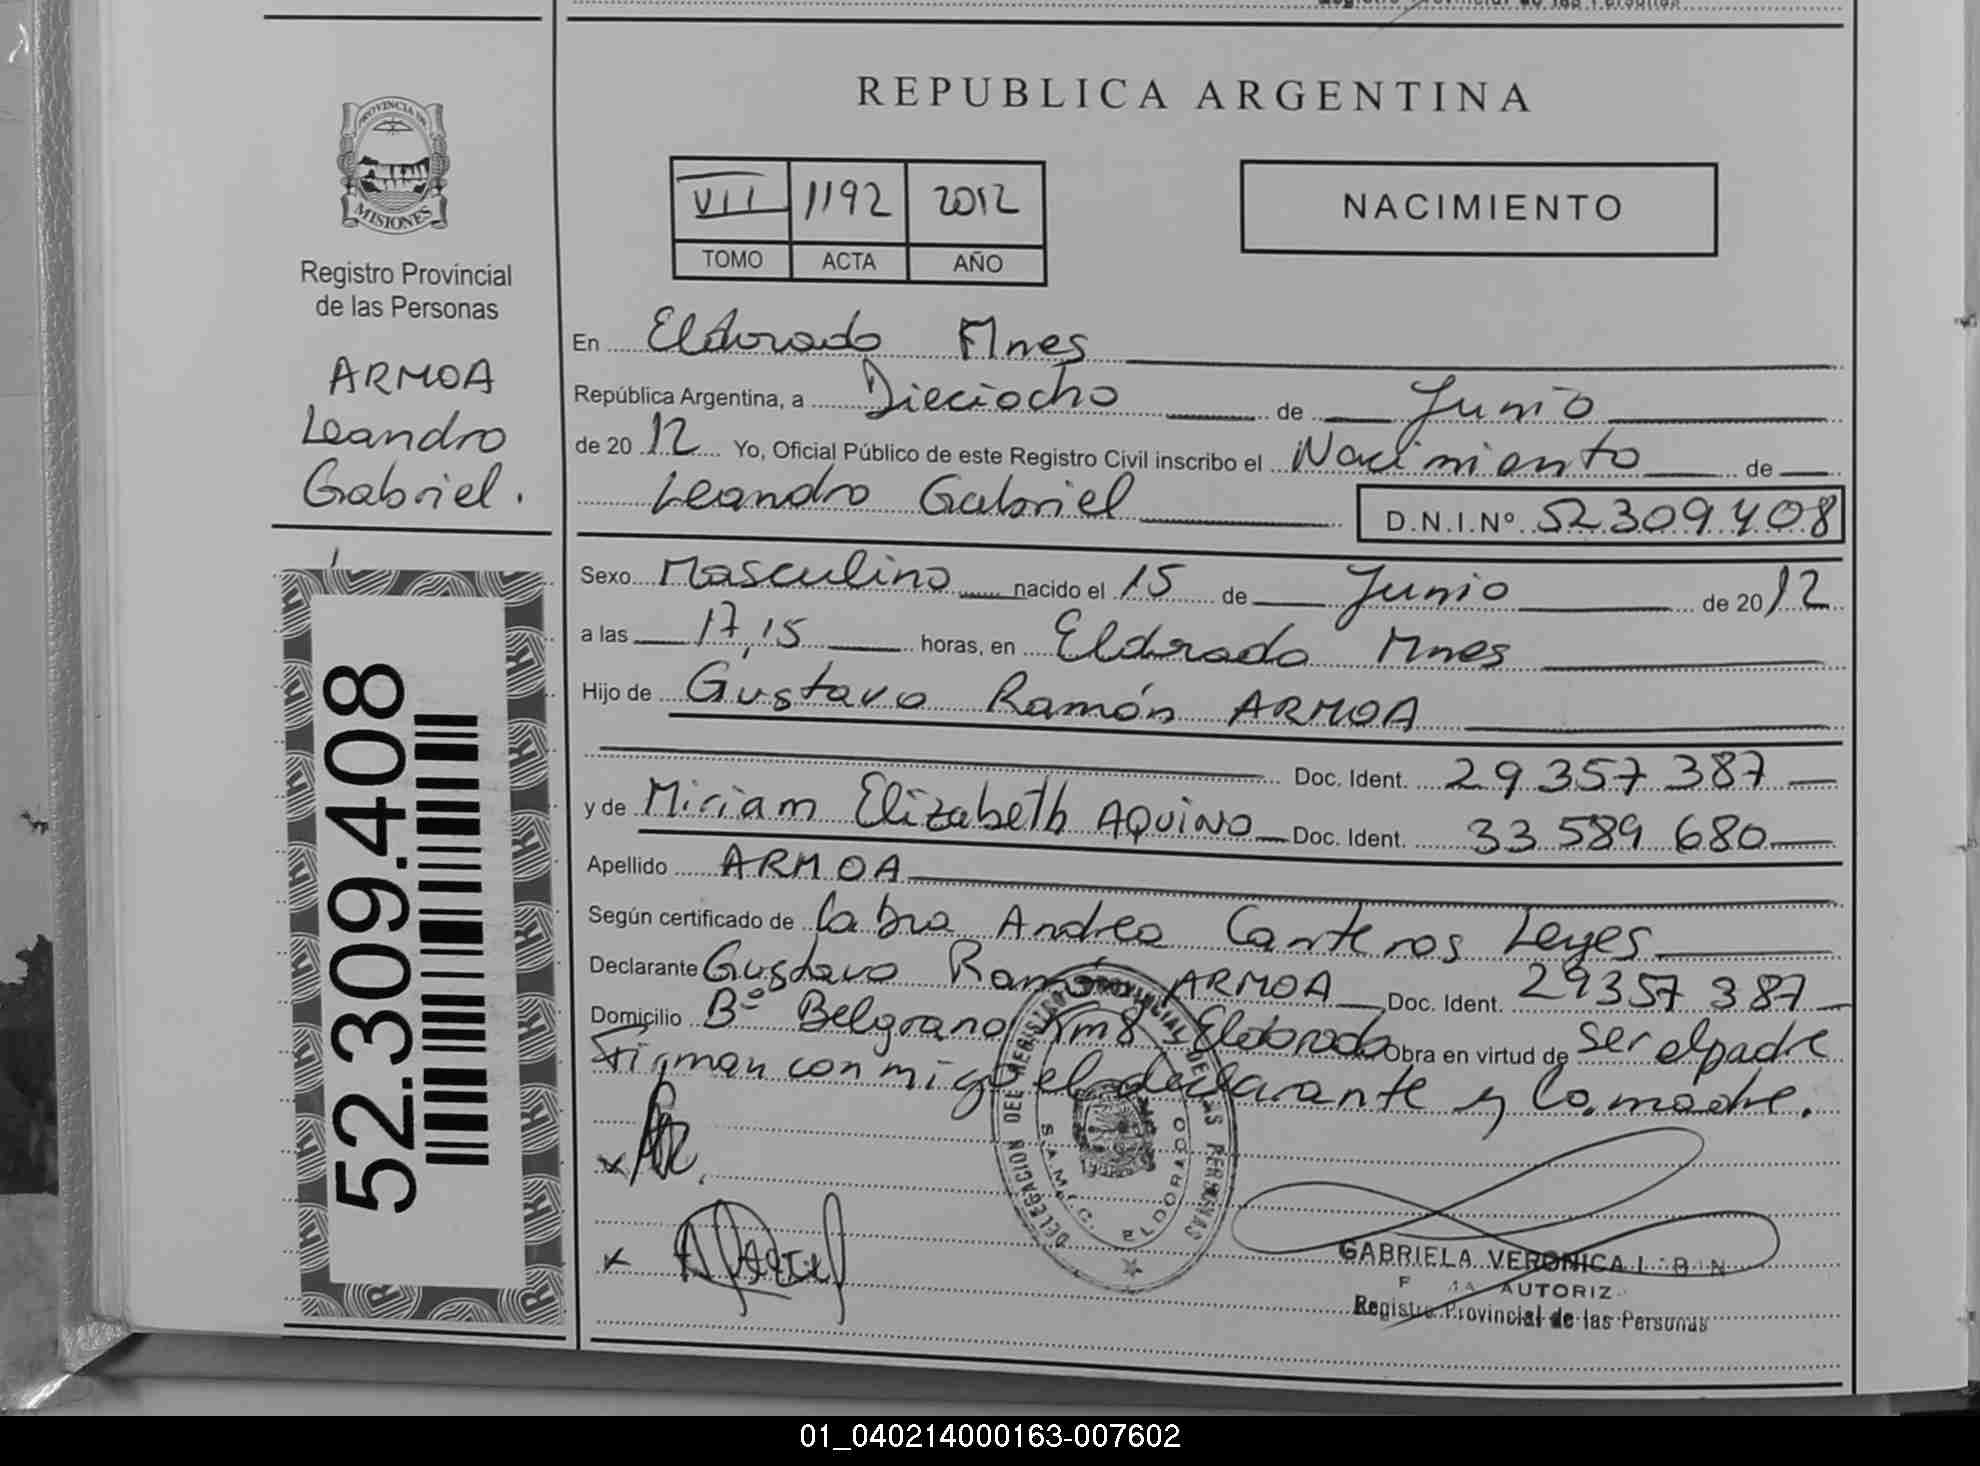 REPUBLICA ARGENTINA
PROVINCIA DE
MISIONES
Registro Provincial
de las Personas
ARMOA
Leandro
Gabriel.
52.309.408
VII 1192 2012
TOMO ACTA AÑO
NACIMIENTO
En Eldorado Mnes
República Argentina, a Dieciocho de Junio
de 2012 Yo, Oficial Público de este Registro Civil inscribo el Nacimiento de
Leandro Gabriel D.N.I.Nº 52309408
Sexo Masculino nacido el 15 de Junio de 2012
a las 17,15 horas, en Eldorado Mnes
Hijo de Gustavo Ramón ARMOA
Doc. Ident. 29357387
y de Miriam Elizabeth AQUINO Doc. Ident. 33589680
Apellido ARMOA
Según certificado de Andrea Canteros Leyes
Declarante Gustavo Ramón ARMOA Doc. Ident. 29357387
Domicilio Bº Belgrano Km8 Eldorado Obra en virtud de ser el padre
Firman conmigo el declarante y la madre.
DELEGACION DEL REGISTRO PROVINCIAL DE LAS PERSONAS
S.A.M.I.C. ELDORADO
GABRIELA VERONICA
AUTORIZ
Registro Provincial de las Personas
01_040214000163-007602